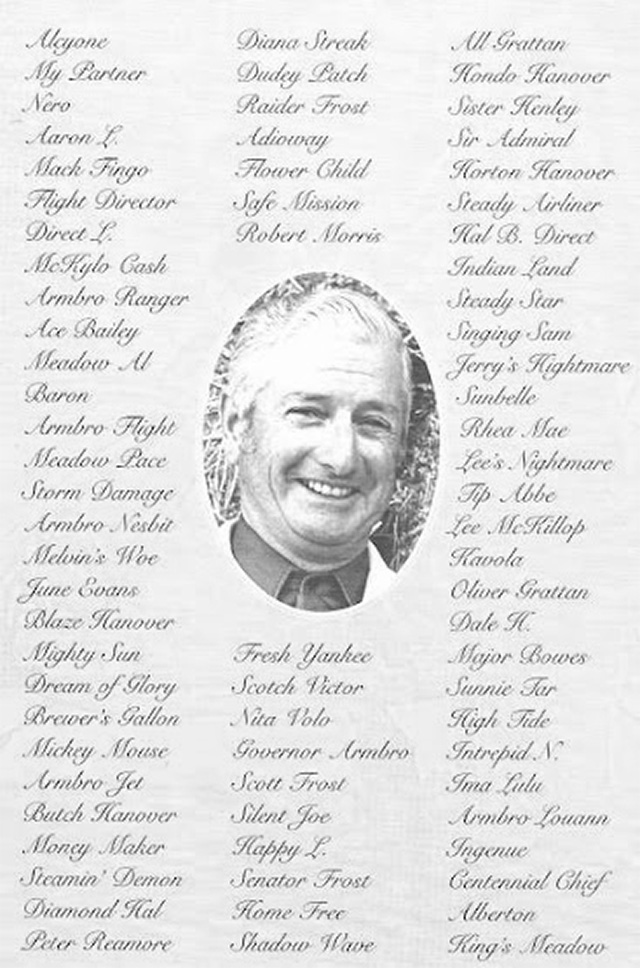 Alcyone
My Partner
Nero
Aaron L.
Mack Fingo
Flight Director
Direct L.
McKylo Cash
Armbro Ranger
Ace Bailey
Meadow Al
Baron
Armbro Flight
Meadow Pace
Storm Damage
Armbro Nesbit
Melvin's Woe
June Evans
Blaze Hanover
Mighty Sun
Dream of Glory
Brewer's Gallon
Mickey Mouse
Armbro Jet
Butch Hanover
Money Maker
Steamin' Demon
Diamond Hal
Peter Reamore
Diana Streak
Dudey Patch
Raider Frost
Adioway
Flower Child
Safe Mission
Robert Morris
Fresh Yankee
Scotch Victor
Nita Volo
Governor Armbro
Scott Frost
Silent Joe
Happy L.
Senator Frost
Home Free
Shadow Wave
All Grattan
Hondo Hanover
Sister Henley
Sir Admiral
Horton Hanover
Steady Airliner
Hal B. Direct
Indian Land
Steady Star
Singing Sam
Jerry's Hightmare
Sunbelle
Rhea Mae
Lee's Nightmare
Tip Abbe
Lee McKillop
Kavola
Oliver Grattan
Dale H.
Major Bowes
Sunnie Tar
High Tide
Intrepid N.
Ima Lulu
Armbro Louann
Ingenue
Centennial Chief
Alberton
King's Meadow